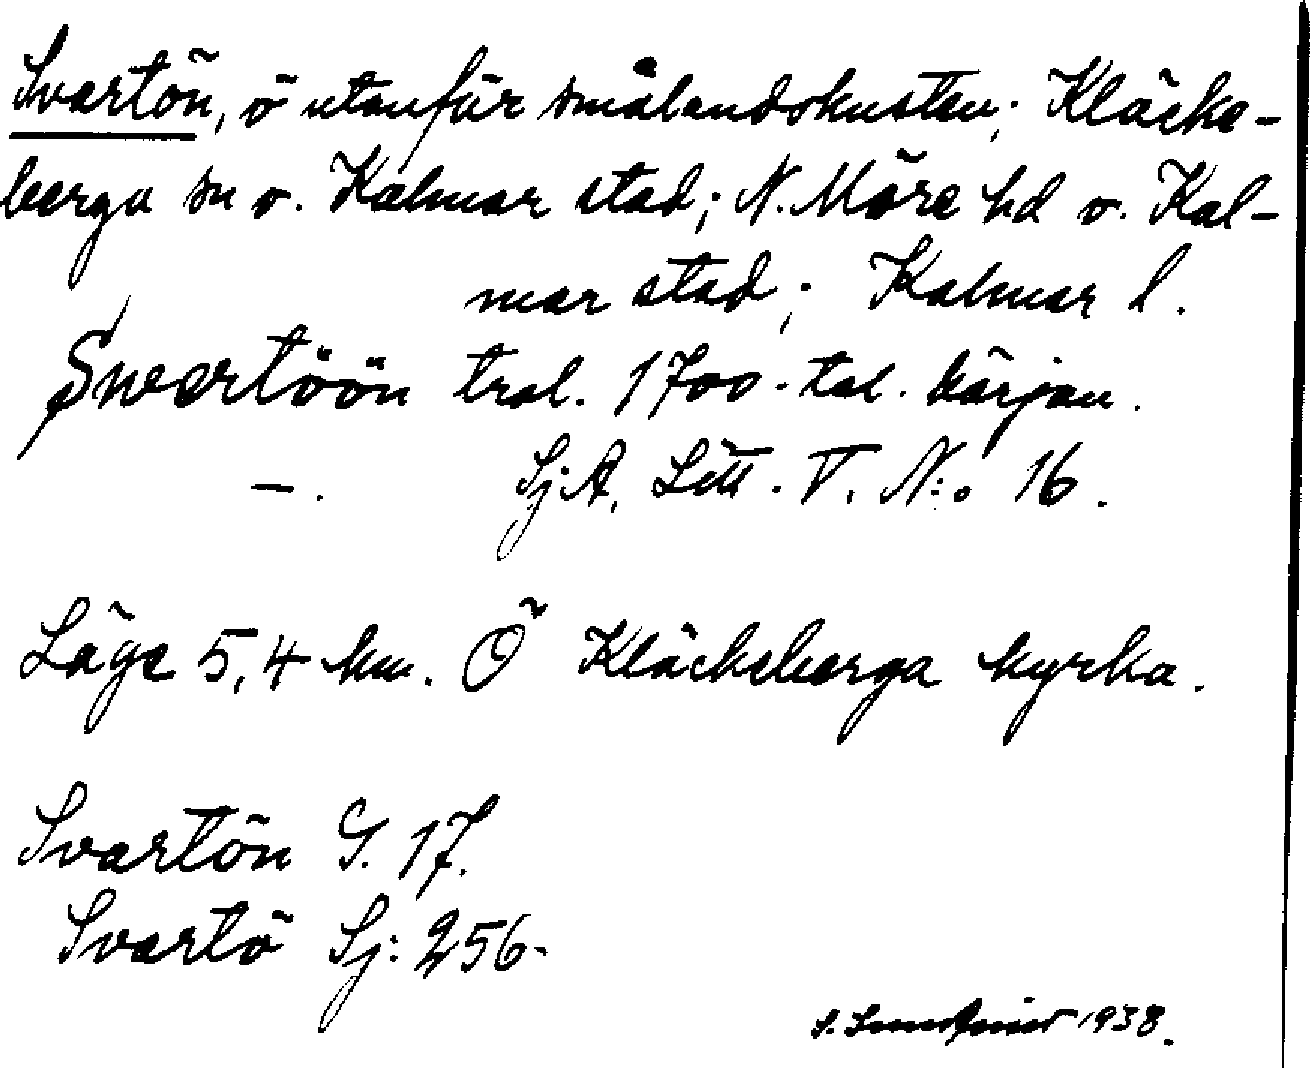 Svartön, ö utanför smålandskusten; Kläcke-
berga sn o. Kalmar stad; N. Möre hd o. Kal-
mar stad; Kalmar l.
Swartöön trol. 1700-tal. början.
–. Sj A. Litt. V. N:o 16.
Läge 5,4 km. Ö Kläckeberga kyrka.
Svartön G. 17.
Svartö Sj: 256.
S. 1938.